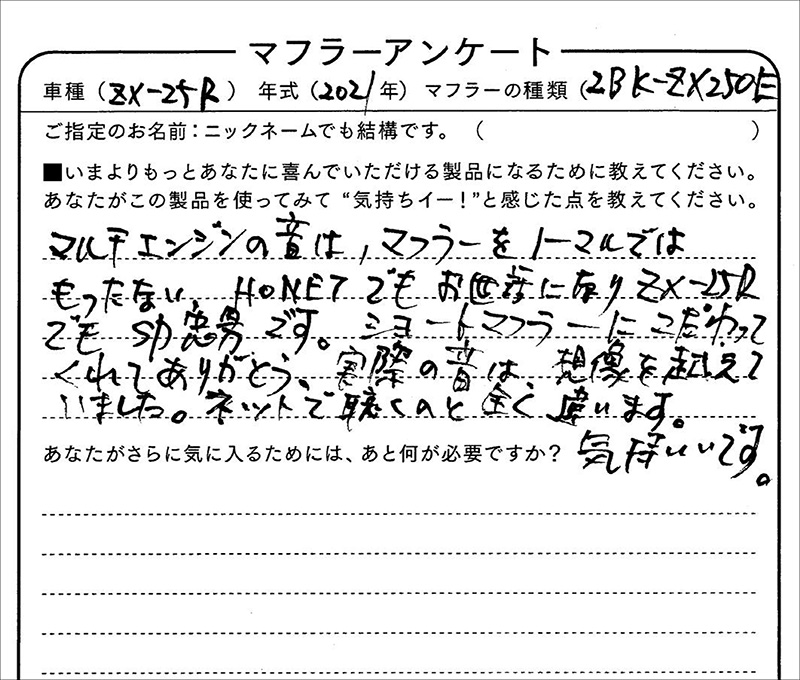 マフラーアンケート
車種（ZX-25R） 年式（2021年） マフラーの種類（2BK-ZX250E
ご指定のお名前：ニックネームでも結構です。（　　　）
■いまよりもっとあなたに喜んでいただける製品になるために教えてください。
あなたがこの製品を使ってみて“気持ちイー！”と感じた点を教えてください。
マルチエンジンの音は，マフラーをノーマルでは
もったない、HONETでもお世話になりZX-25R
でもSP忠男です。ショートマフラーにこだわって
くれてありがとう、実際の音は、想像を超えて
いました。ネットで聴くのと全く違います。
あなたがさらに気に入るためには、あと何が必要ですか？ 気持いいです。